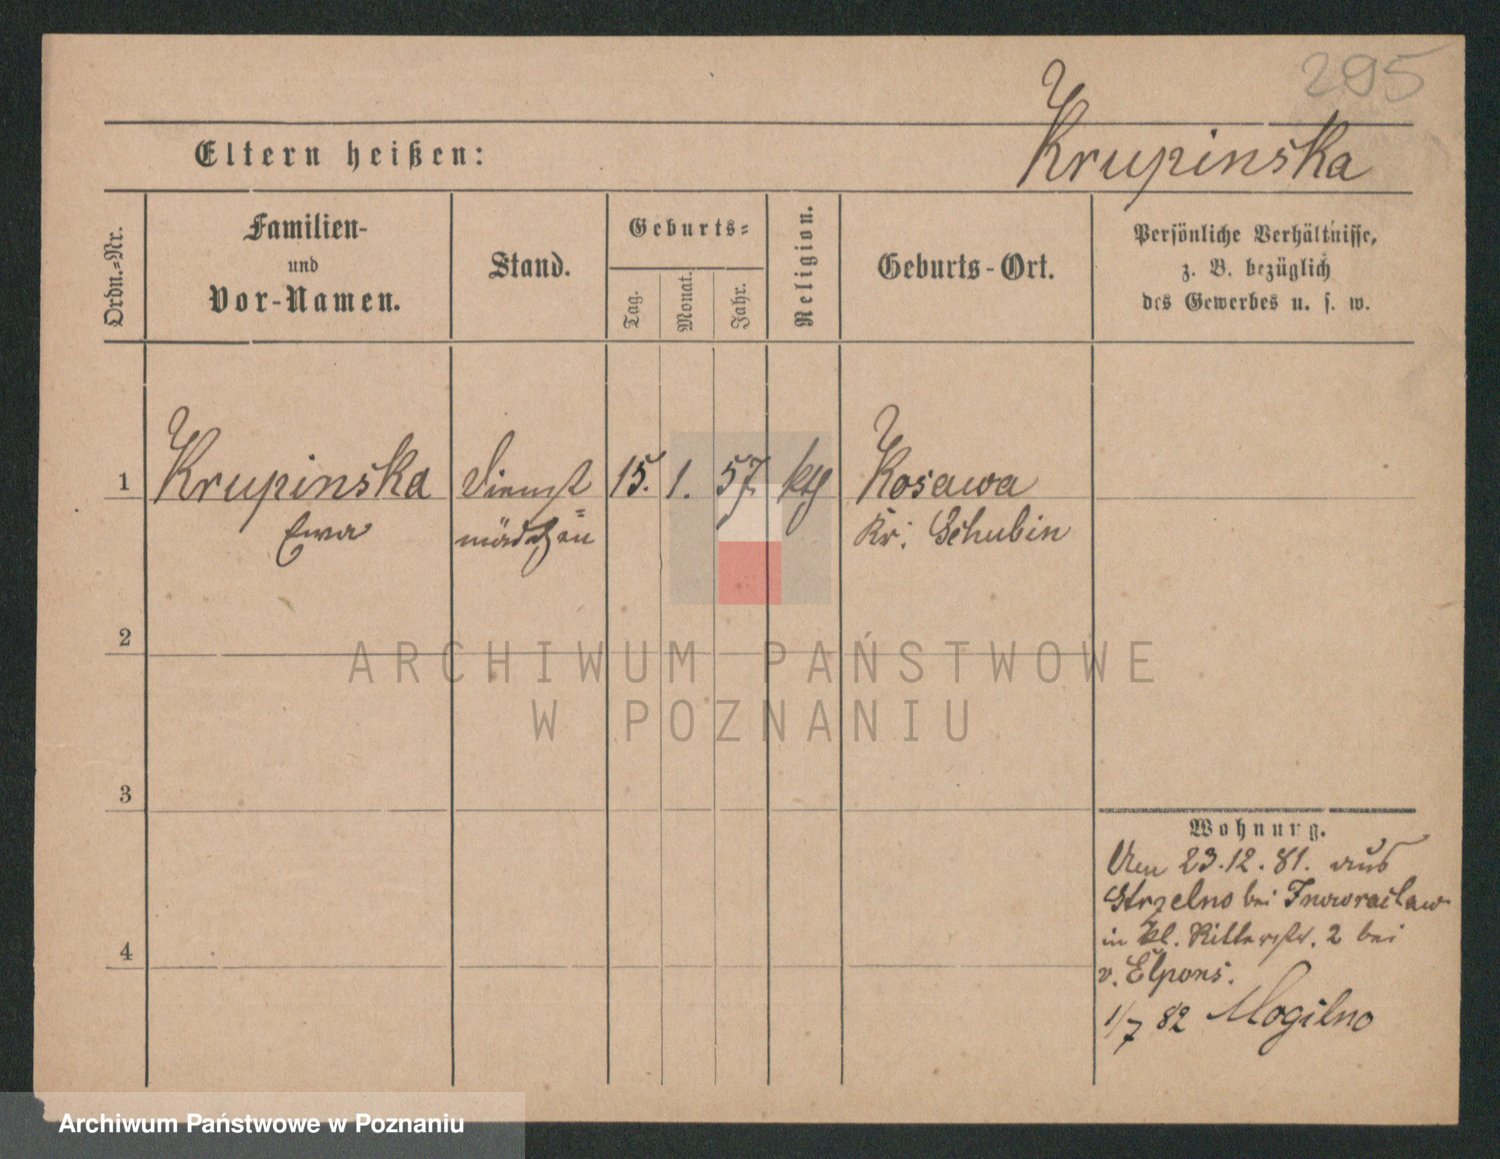 295
Krupinska
Eltern heißen:
Ordn.-Nr.
Familien-
und
Vor-Namen.
Stand.
Geburts-
Tag.
Monat.
Jahr.
Religion.
Geburts-Ort.
Persönliche Verhältnisse,
z. B. bezüglich
des Gewerbes u. s. w.
1 Krupinska Dienst 15. 1. 57. kth Kosawa
Ewa mädchen Kr. Schubin
2
ARCHIWUM PAŃSTWOWE
W POZNANIU
3
Wohnung.
Am 23.12.81. aus
Strzelno bei Inowraclaw
in kl. Ritterstr. 2 bei
4
v. Elpons.
1/7 82 Mogilno
Archiwum Państwowe w Poznaniu